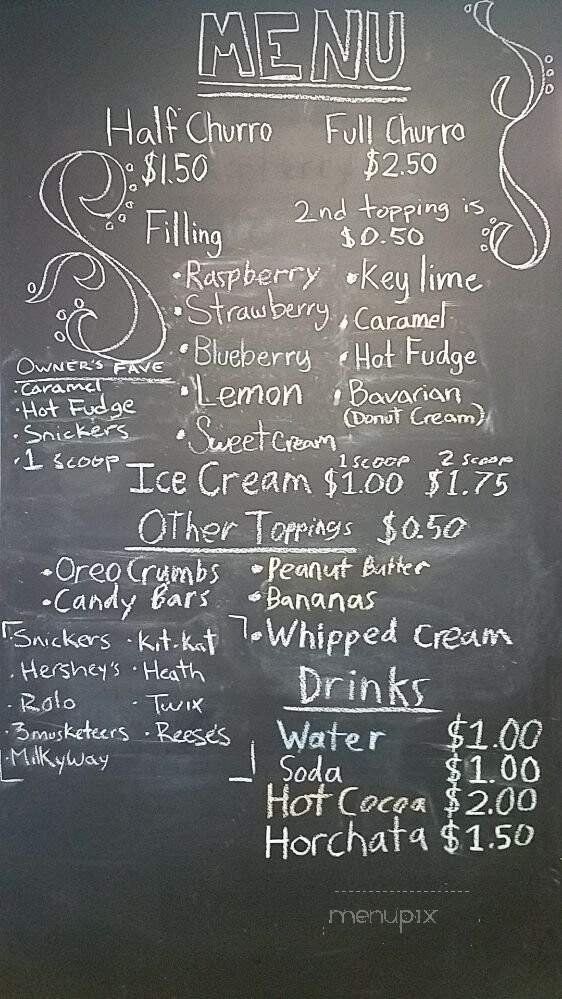 MENU
Half Churro Full Churro
$1.50 $2.50
Filling
2nd topping is
$0.50
• Raspberry
• Strawberry
• Blueberry
• Lemon
• Sweet Cream
• Key lime
• Caramel
• Hot Fudge
• Bavarian
(Donut Cream)
OWNER'S FAVE
• Caramel
• Hot Fudge
• Snickers
• 1 scoop
1 scoop 2 scoop
Ice Cream $1.00 $1.75
Other Toppings $0.50
• Oreo Crumbs
• Candy Bars
• Peanut Butter
• Bananas
• Whipped Cream
Snickers • Kit-Kat
• Hershey's • Heath
• Rolo • Twix
• 3musketeers • Reese's
• MilKyWay
Drinks
Water $1.00
Soda $1.00
Hot Cocoa $2.00
Horchata $1.50
menupix